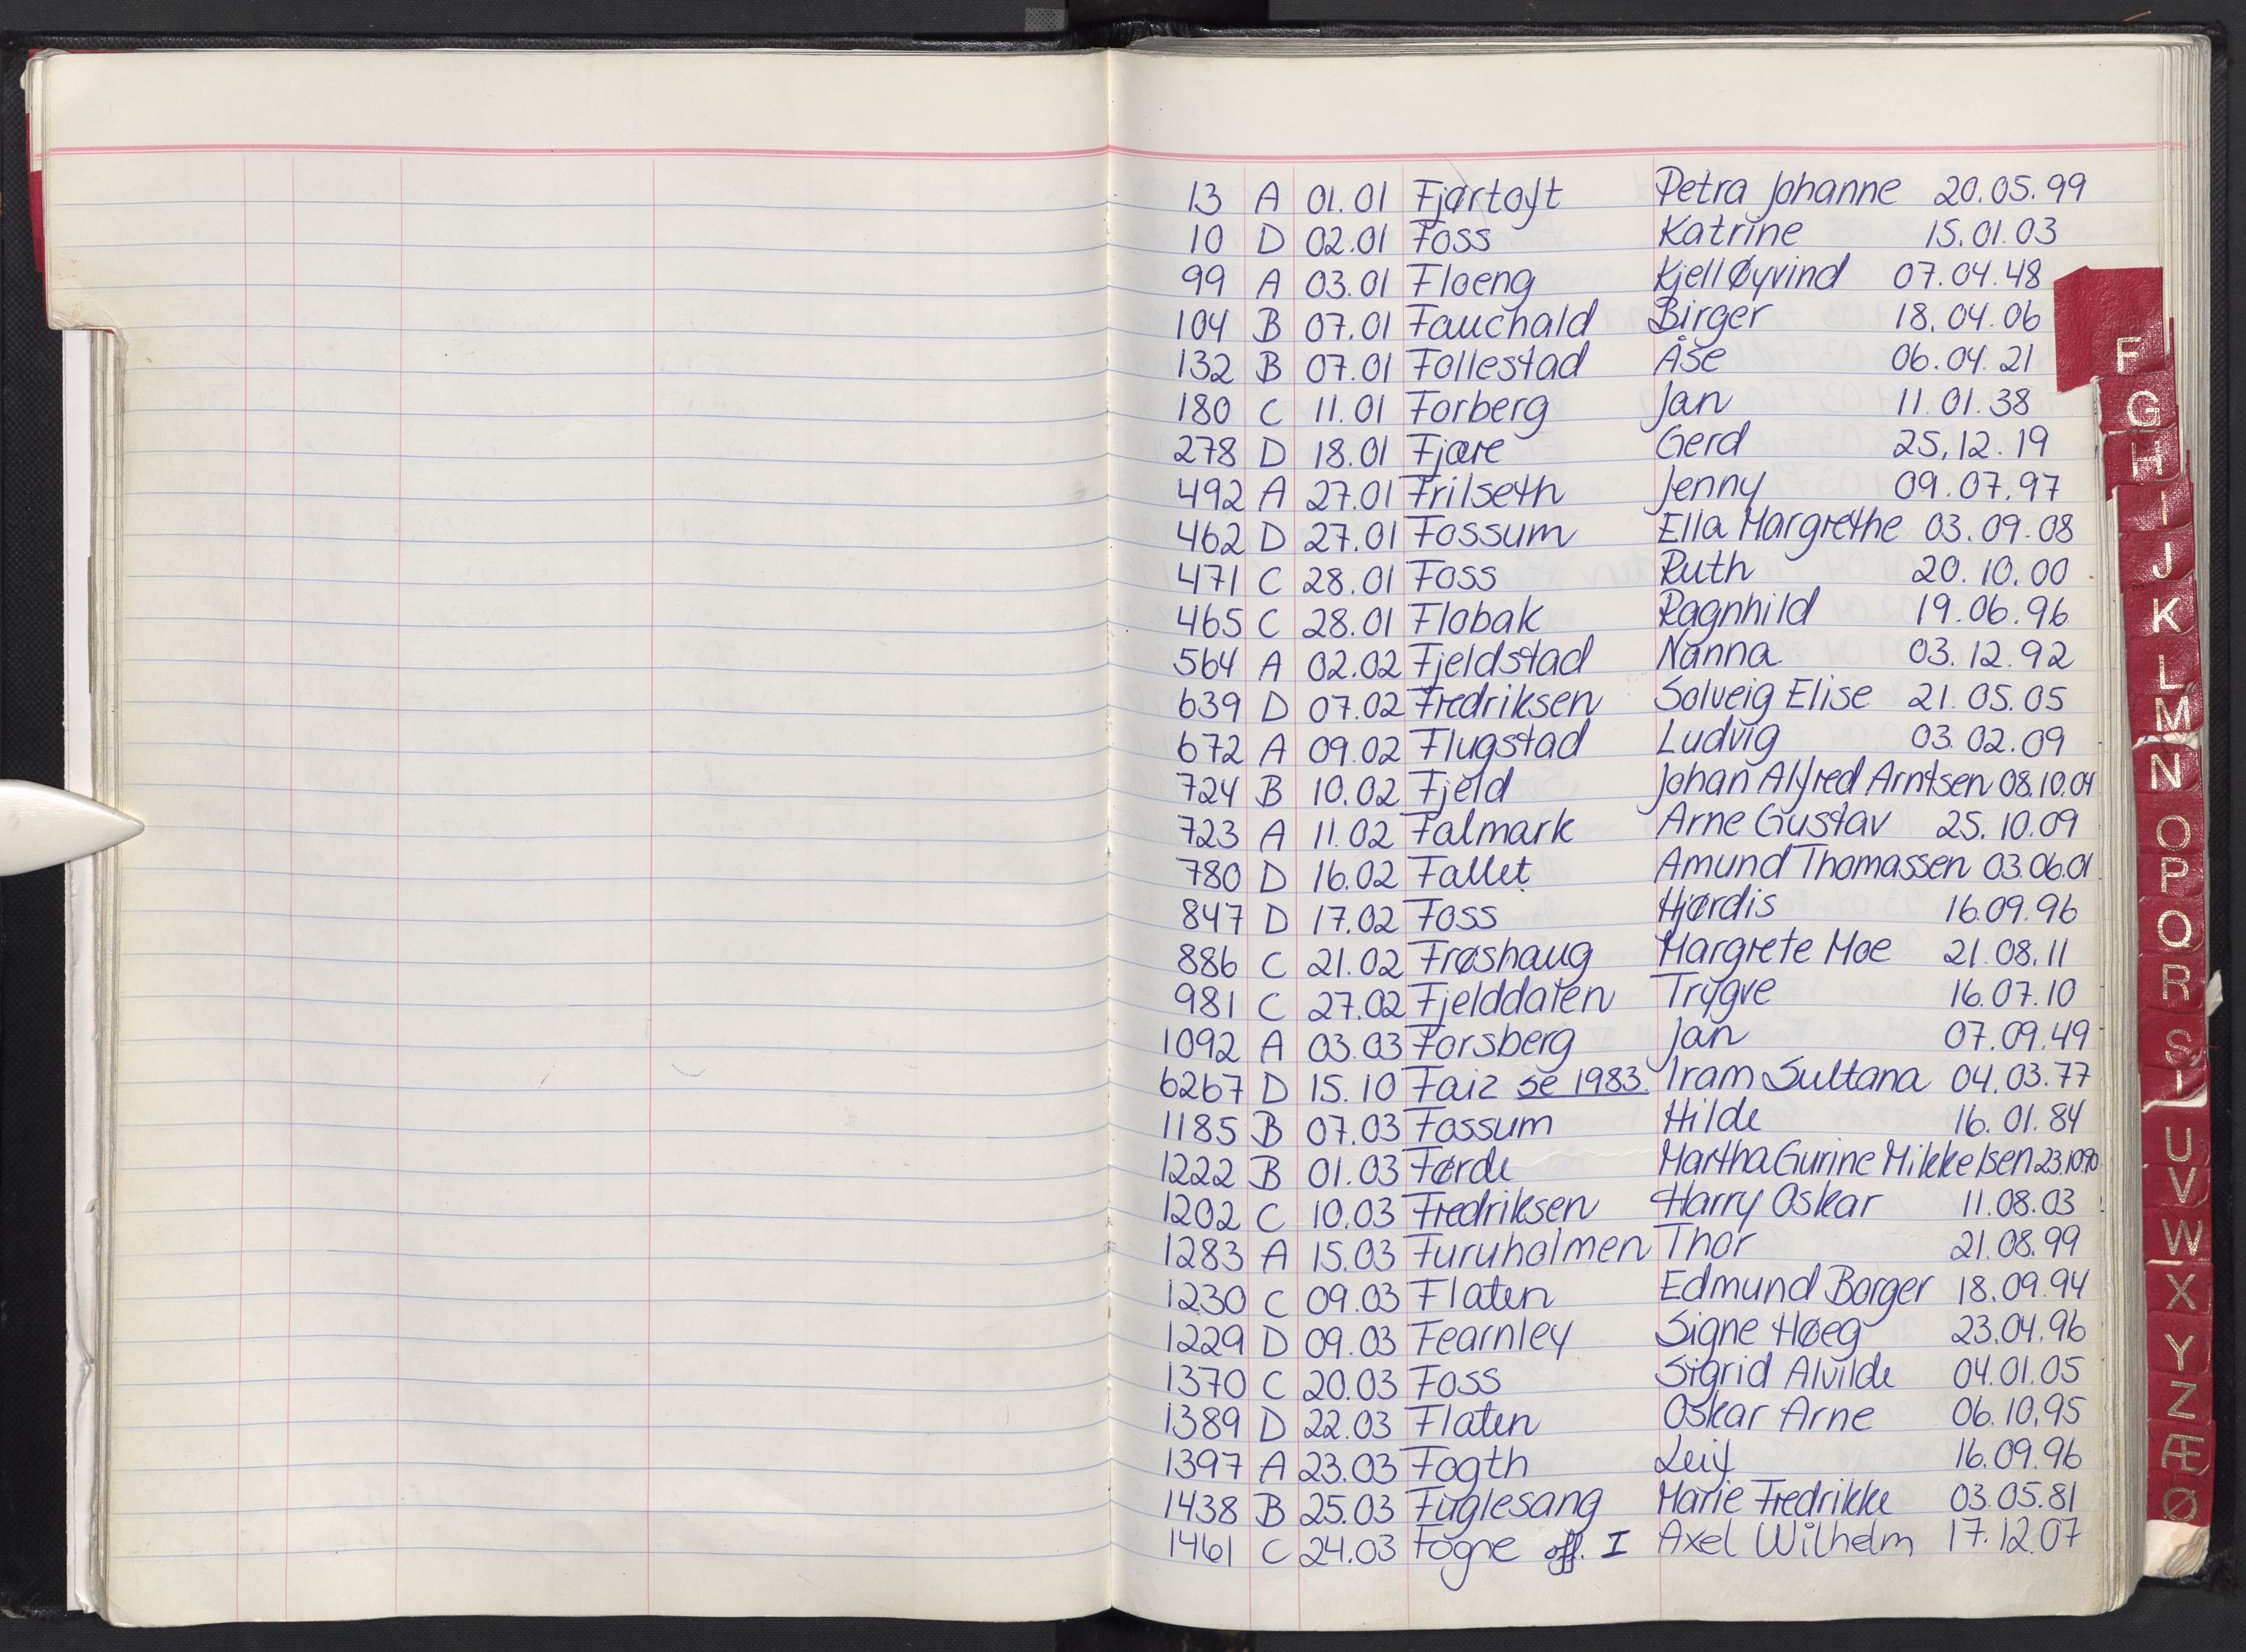 13 A 01.01 Fjørtoft Petra Johanne 20.05.99
10 D 02.01 Foss Katrine 15.01.03
99 A 03.01 Floeng Kjell Øyvind 07.04.48
104 B 07.01 Fauchald Birger 18.04.06
132 B 07.01 Follestad Åse 06.04.21
180 C 11.01 Forberg Jan 11.01.38
278 D 18.01 Fjære Gerd 25.12.19
492 A 27.01 Frilseth Jenny 09.07.97
462 D 27.01 Fossum Ella Margrethe 03.09.08
471 C 28.01 Foss Ruth 20.10.00
465 C 28.01 Flobak Ragnhild 19.06.96
564 A 02.02 Fjeldstad Nanna 03.12.92
639 D 07.02 Fredriksen Solveig Elise 21.05.05
672 A 09.02 Flugstad Ludvig 03.02.09
724 B 10.02 Fjeld Johan Alfred Arntsen 08.10.04
723 A 11.02 Falmark Arne Gustav 25.10.09
780 D 16.02 Fallet Amund Thomassen 03.06.01
847 D 17.02 Foss Hjørdis 16.09.96
886 C 21.02 Frøshaug Margrete Moe 21.08.11
981 C 27.02 Fjelddalen Trygve 16.07.10
1092 A 03.03 Forsberg Jan 07.09.49
6267 D 15.10 Faiz se 1983. Iram Sultana 04.03.77
1185 B 07.03 Fossum Hilde 16.01.84
1222 B 01.03 Førde Martha Gurine Mikkelsen 23.10.90
1202 C 10.03 Fredriksen Harry Oskar 11.08.03
1283 A 15.03 Furuholmen Thor 21.08.99
1230 C 09.03 Flaten Edmund Borger 18.09.94
1229 D 09.03 Fearnley Signe Høeg 23.04.96
1370 C 20.03 Foss Sigrid Alvilde 04.01.05
1389 D 22.03 Flaten Oskar Arne 06.10.95
1397 A 23.03 Fogth Leif 16.09.96
1438 B 25.03 Fuglesang Marie Fredrikke 03.05.81
1461 C 24.03 Fogne off. I Axel Wilhelm 17.12.07
F
G
H
I
J
K
L
M
N
O
P
Q
R
S
T
U
V
W
X
Y
Z
Æ
Ø